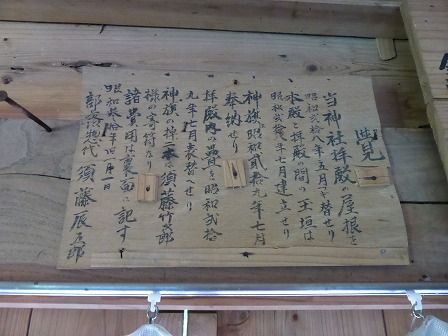 覚
当神社拝殿の屋根を
昭和弐拾八年五月替せり
本殿拝殿の間の玉垣は
昭和弐拾年七月建立せり
神旗昭和弐拾九年七月
奉納せり
拝殿内の畳を昭和弐拾
九年七月表替へせり
神旗の棹二本須藤竹次郎
様の寄付なり
諸費用は裏面に記す
昭和参拾年四月一日
部落惣代 須藤辰五郎